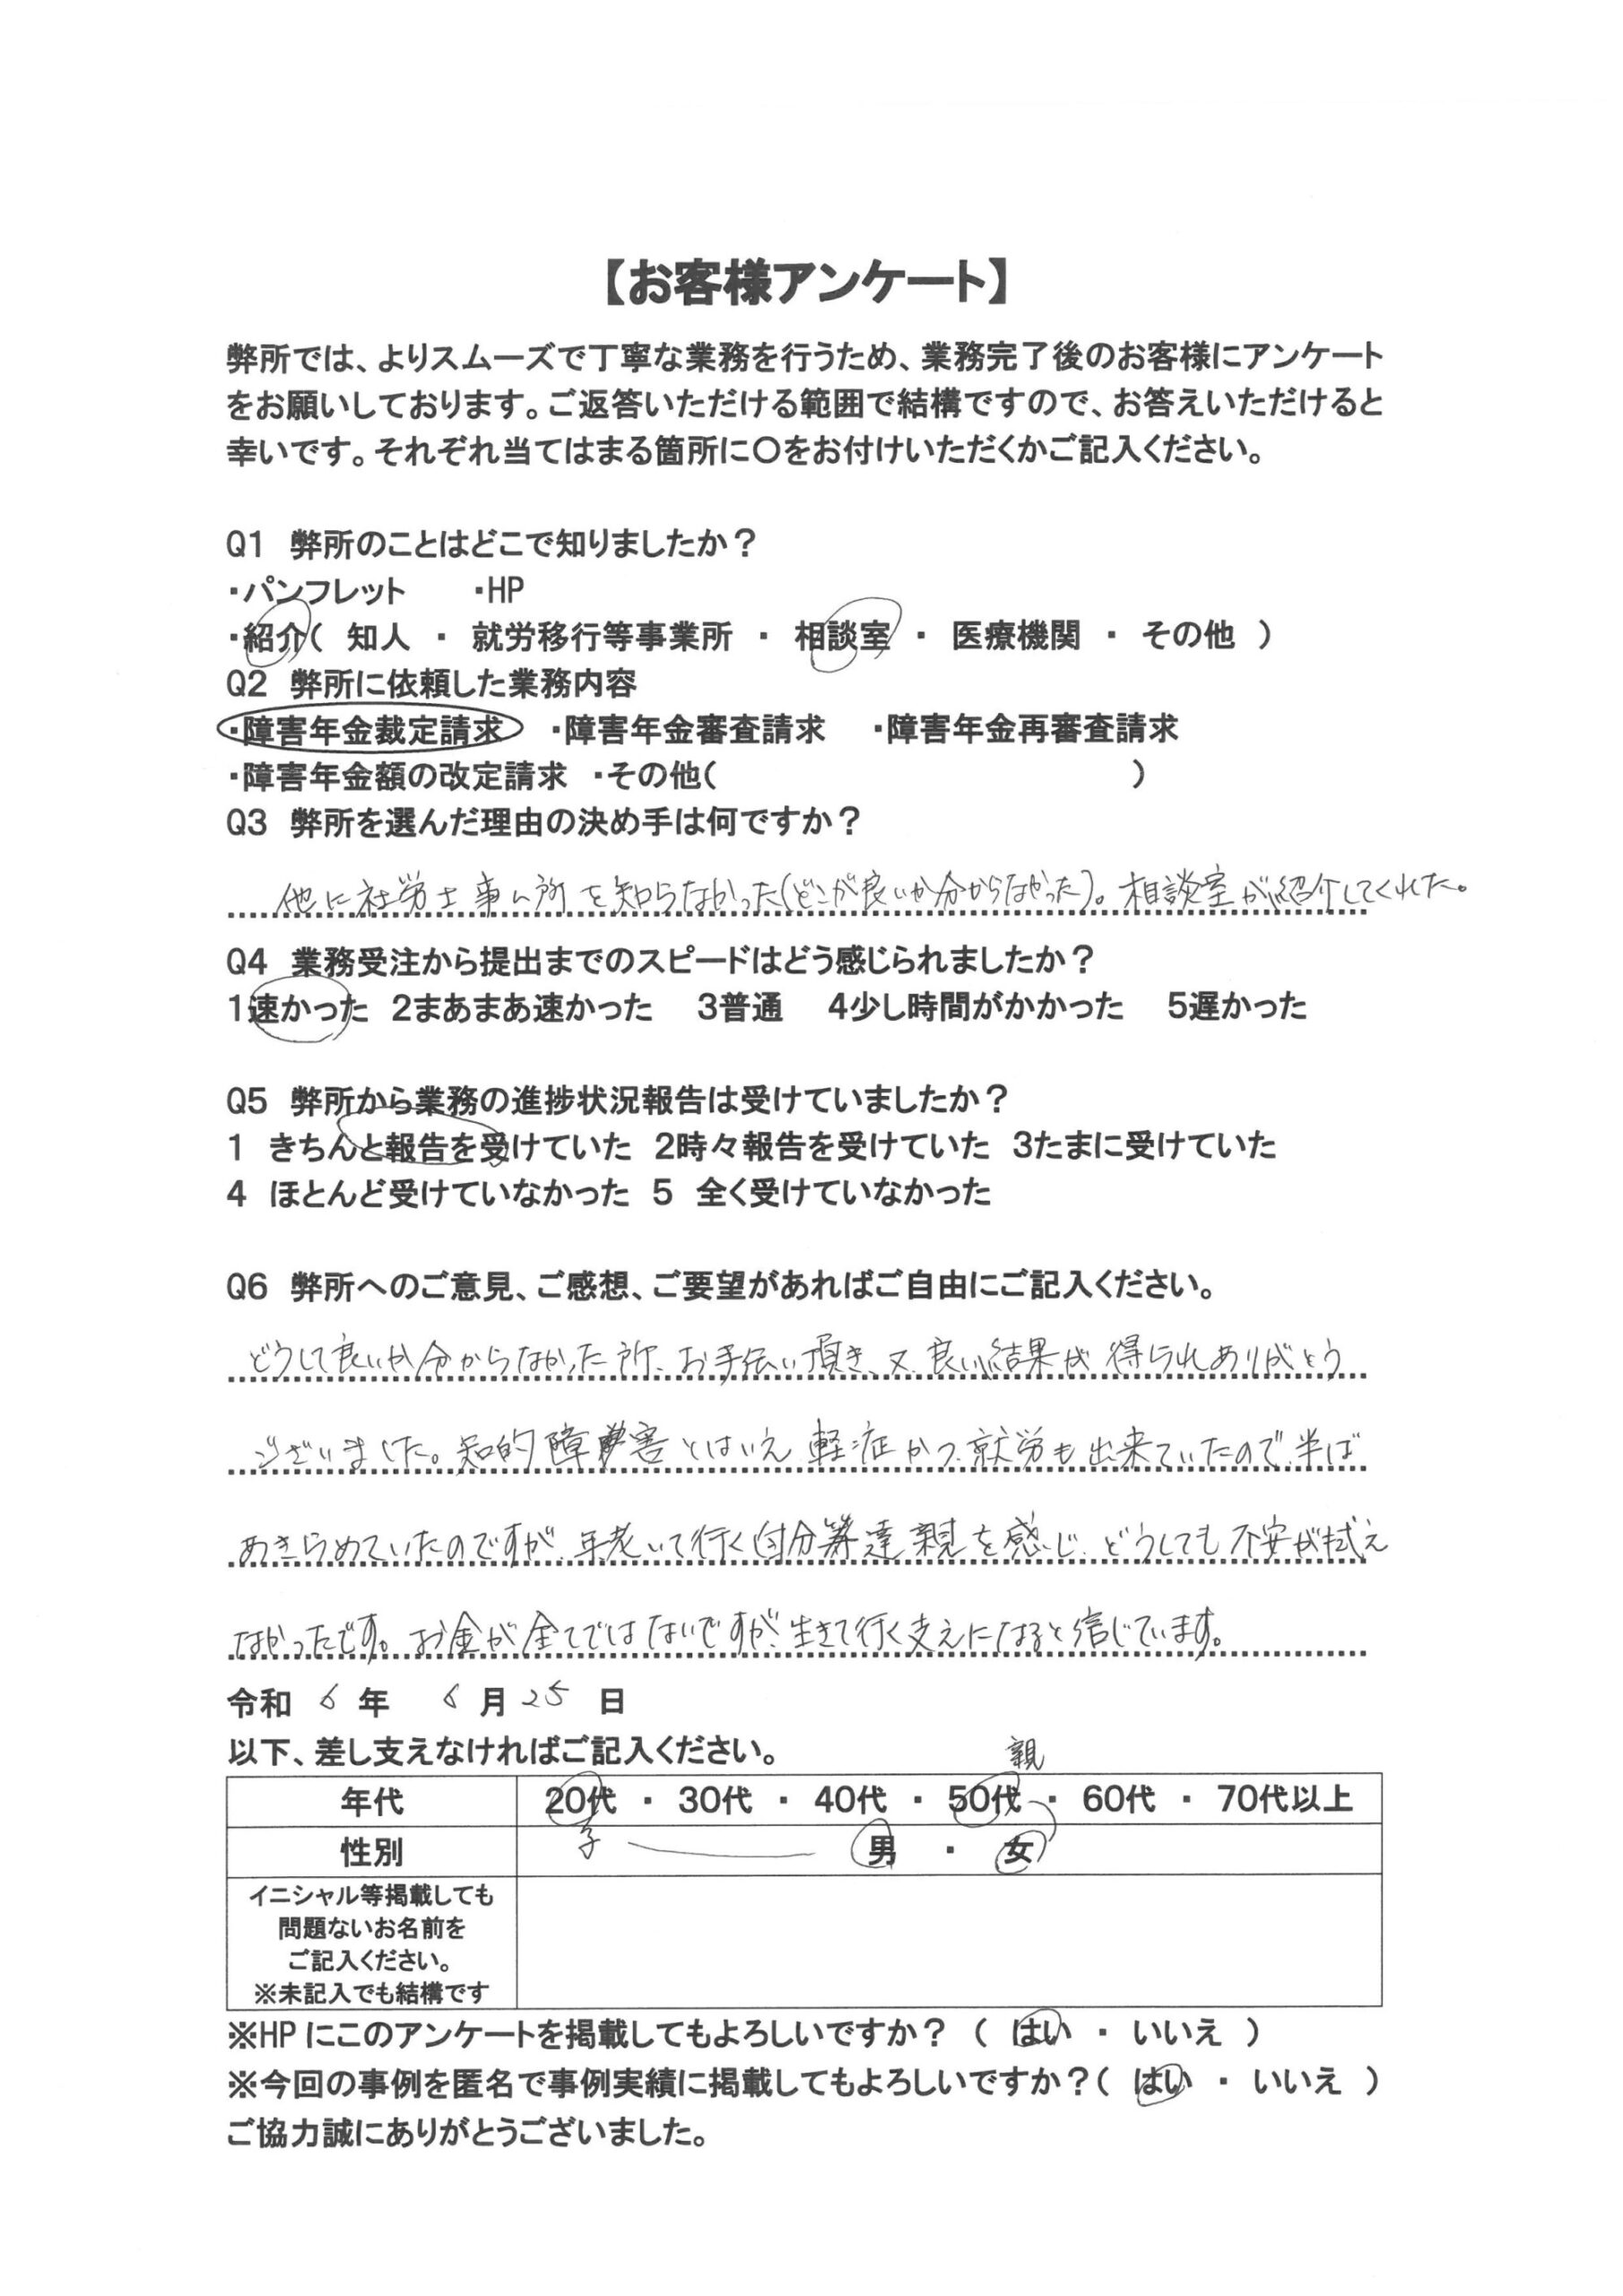 【お客様アンケート】
弊所では、よりスムーズで丁寧な業務を行うため、業務完了後のお客様にアンケート
をお願いしております。ご返答いただける範囲で結構ですので、お答えいただけると
幸いです。それぞれ当てはまる箇所に〇をお付けいただくかご記入ください。
Q1 弊所のことはどこで知りましたか？
・パンフレット ・HP
・紹介（ 知人 ・ 就労移行等事業所 ・ 相談室 ・ 医療機関 ・ その他 ）
Q2 弊所に依頼した業務内容
・障害年金裁定請求 ・障害年金審査請求 ・障害年金再審査請求
・障害年金額の改定請求 ・その他（ ）
Q3 弊所を選んだ理由の決め手は何ですか？
他に社労士事ム所を知らなかった(どこが良いか分からなかった)。相談室が紹介してくれた。
Q4 業務受注から提出までのスピードはどう感じられましたか？
1速かった 2まあまあ速かった 3普通 4少し時間がかかった 5遅かった
Q5 弊所から業務の進捗状況報告は受けていましたか？
1 きちんと報告を受けていた 2時々報告を受けていた 3たまに受けていた
4 ほとんど受けていなかった 5 全く受けていなかった
Q6 弊所へのご意見、ご感想、ご要望があればご自由にご記入ください。
どうして良いか分からなかった所、お手伝い頂き、又、良い結果が得られありがとう
ございました。知的障害とはいえ軽症かつ、就労も出来ていたので、半ば
あきらめていたのですが、年老いて行く自分達親を感じ、どうしても不安が拭え
なかったです。お金が全てではないですが、生きて行く支えになると信じています。
令和 6 年 6 月 25 日
以下、差し支えなければご記入ください。
親
年代 20代 ・ 30代 ・ 40代 ・ 50代 ・ 60代 ・ 70代以上
性別 子 男 ・ 女
イニシャル等掲載しても
問題ないお名前を
ご記入ください。
※未記入でも結構です
※HPにこのアンケートを掲載してもよろしいですか？（ はい ・ いいえ ）
※今回の事例を匿名で事例実績に掲載してもよろしいですか？（ はい ・ いいえ ）
ご協力誠にありがとうございました。